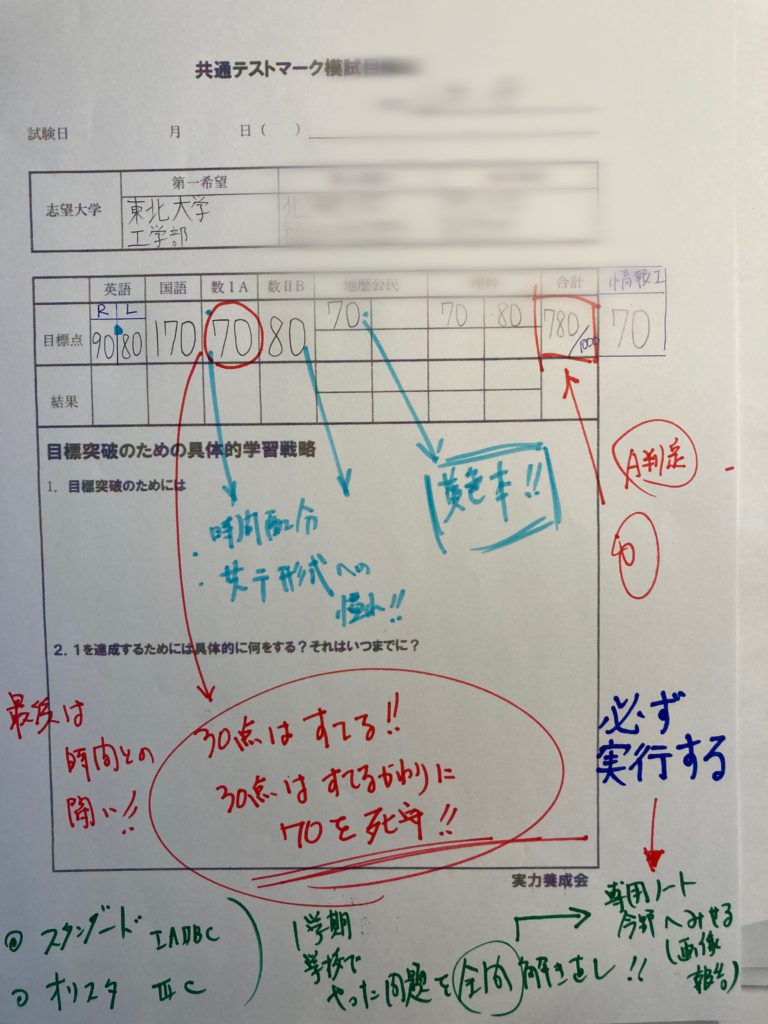 共通テストマーク模試
試験日　　月　　日（　）
志望大学
第一希望
東北大学
工学部
英語 国語 数ⅠA 数ⅡB 地歴公民 理科 合計 情報Ⅰ
R L
目標点 90 80 170 70 80 70 70 80 780/1000 70
結果
目標突破のための具体的学習戦略
A判定
1. 目標突破のためには
黄色本!!
・時間配分
・共テ形式への
慣れ!!
40
2. 1を達成するためには具体的に何をする？それはいつまでに？
最後は
時間との
闘い!!
30点はすてる!!
30点はすてるかわりに
70を死守!!
必ず
実行する
実力養成会
スタンダード ⅠAⅡBC
オリスタ ⅢC
1学期
学校で
やった問題を全問解き直し!!
専用ノート
今野へみせる
(画像
報告)